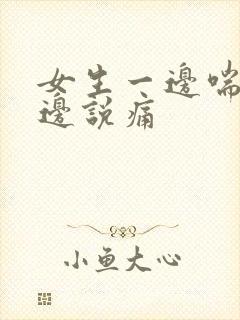 女生一邊喘
邊說痛
小鱼大心